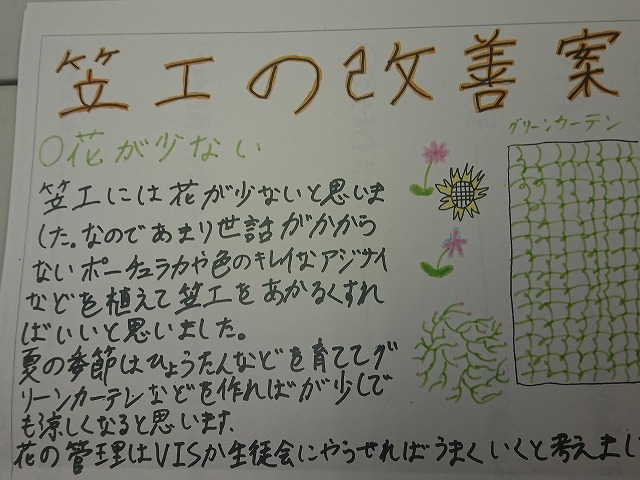 笠工の改善案
○花が少ない
グリーンカーテン
笠工には花が少ないと思いま
した。なのであまり世話がかから
ないポーチュラカや色のキレイなアジサイ
などを植えて笠工をあかるくすれ
ばいいと思いました。
夏の季節はひょうたんなどを育ててグ
リーンカーテンなどを作ればが少しで
も涼しくなると思います.
花の管理はVISか生徒会にやらせればうまくいくと考えまし